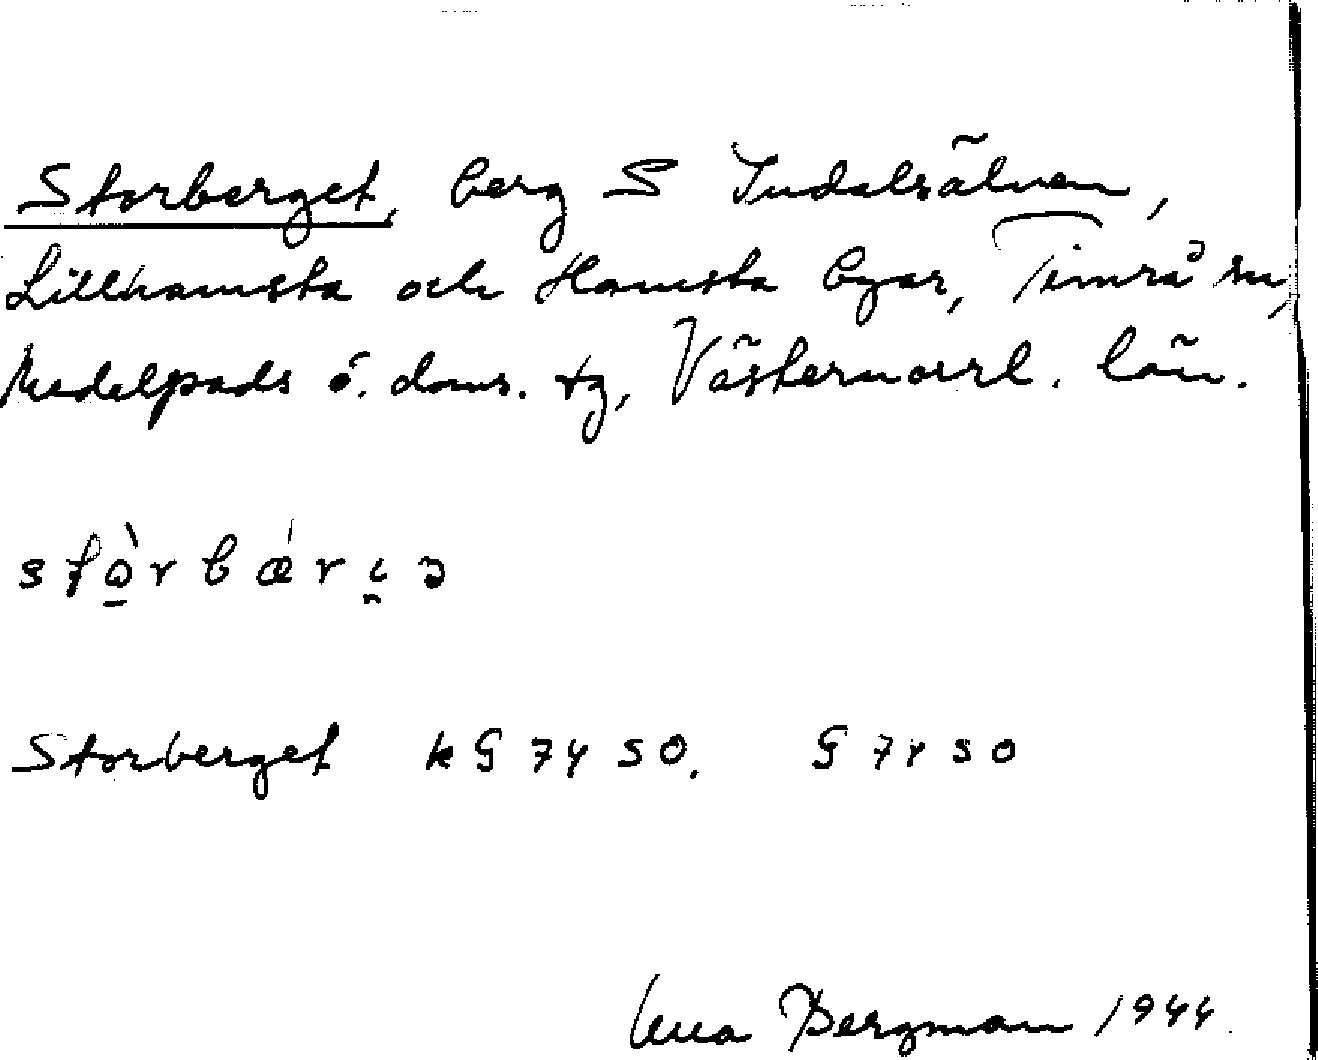 Storberget, berg S Indalsälven,
Lillhamsta och Hamsta byar, Timrå sn,
Medelpads ö. doms. tg, Västernorrl. län.
Storberget k§ 74 50. § 74 50
Bergman 1944.